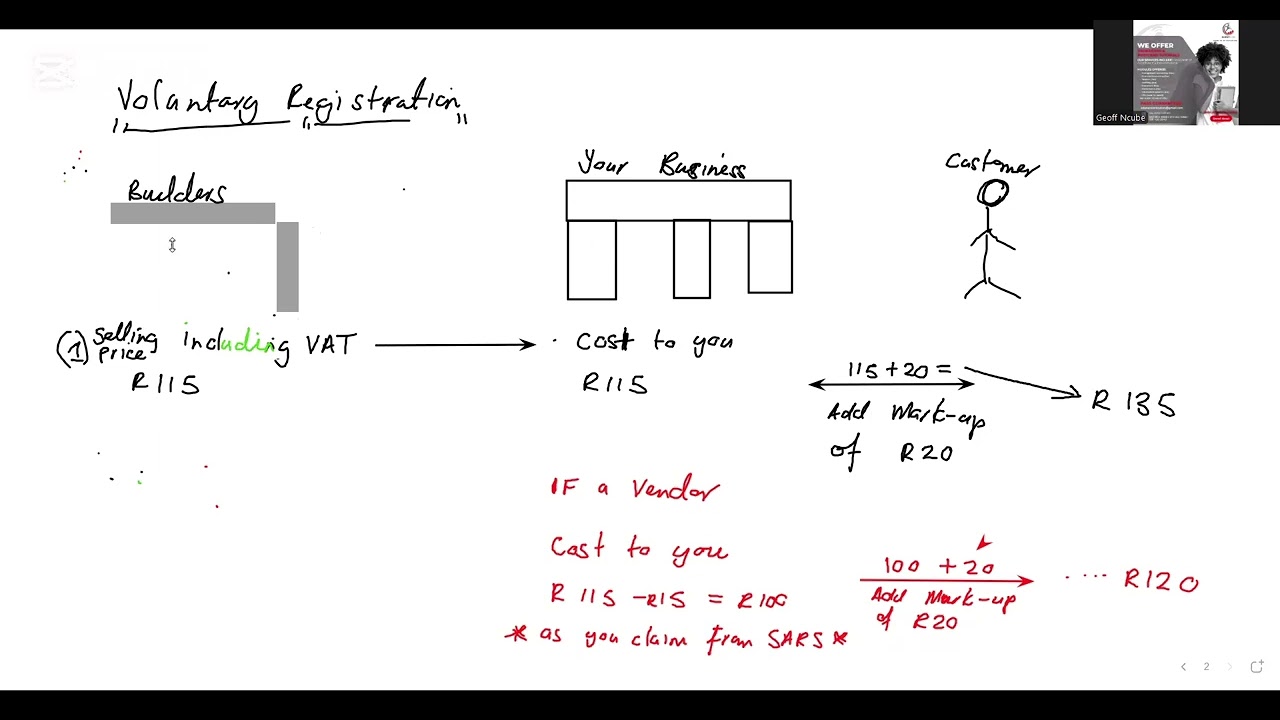 Voluntary Registration
WE OFFER
Geoff Ncube
Builders
Your Business
Customer
(1) Selling price including VAT
R115
Cost to you
R115
115 + 20 =
Add Mark-up
of R20
R 135
IF a Vendor
Cost to you
R 115 - R15 = R100
* as you claim from SARS *
100 + 20
Add Mark-up
of R20
.... R120
2